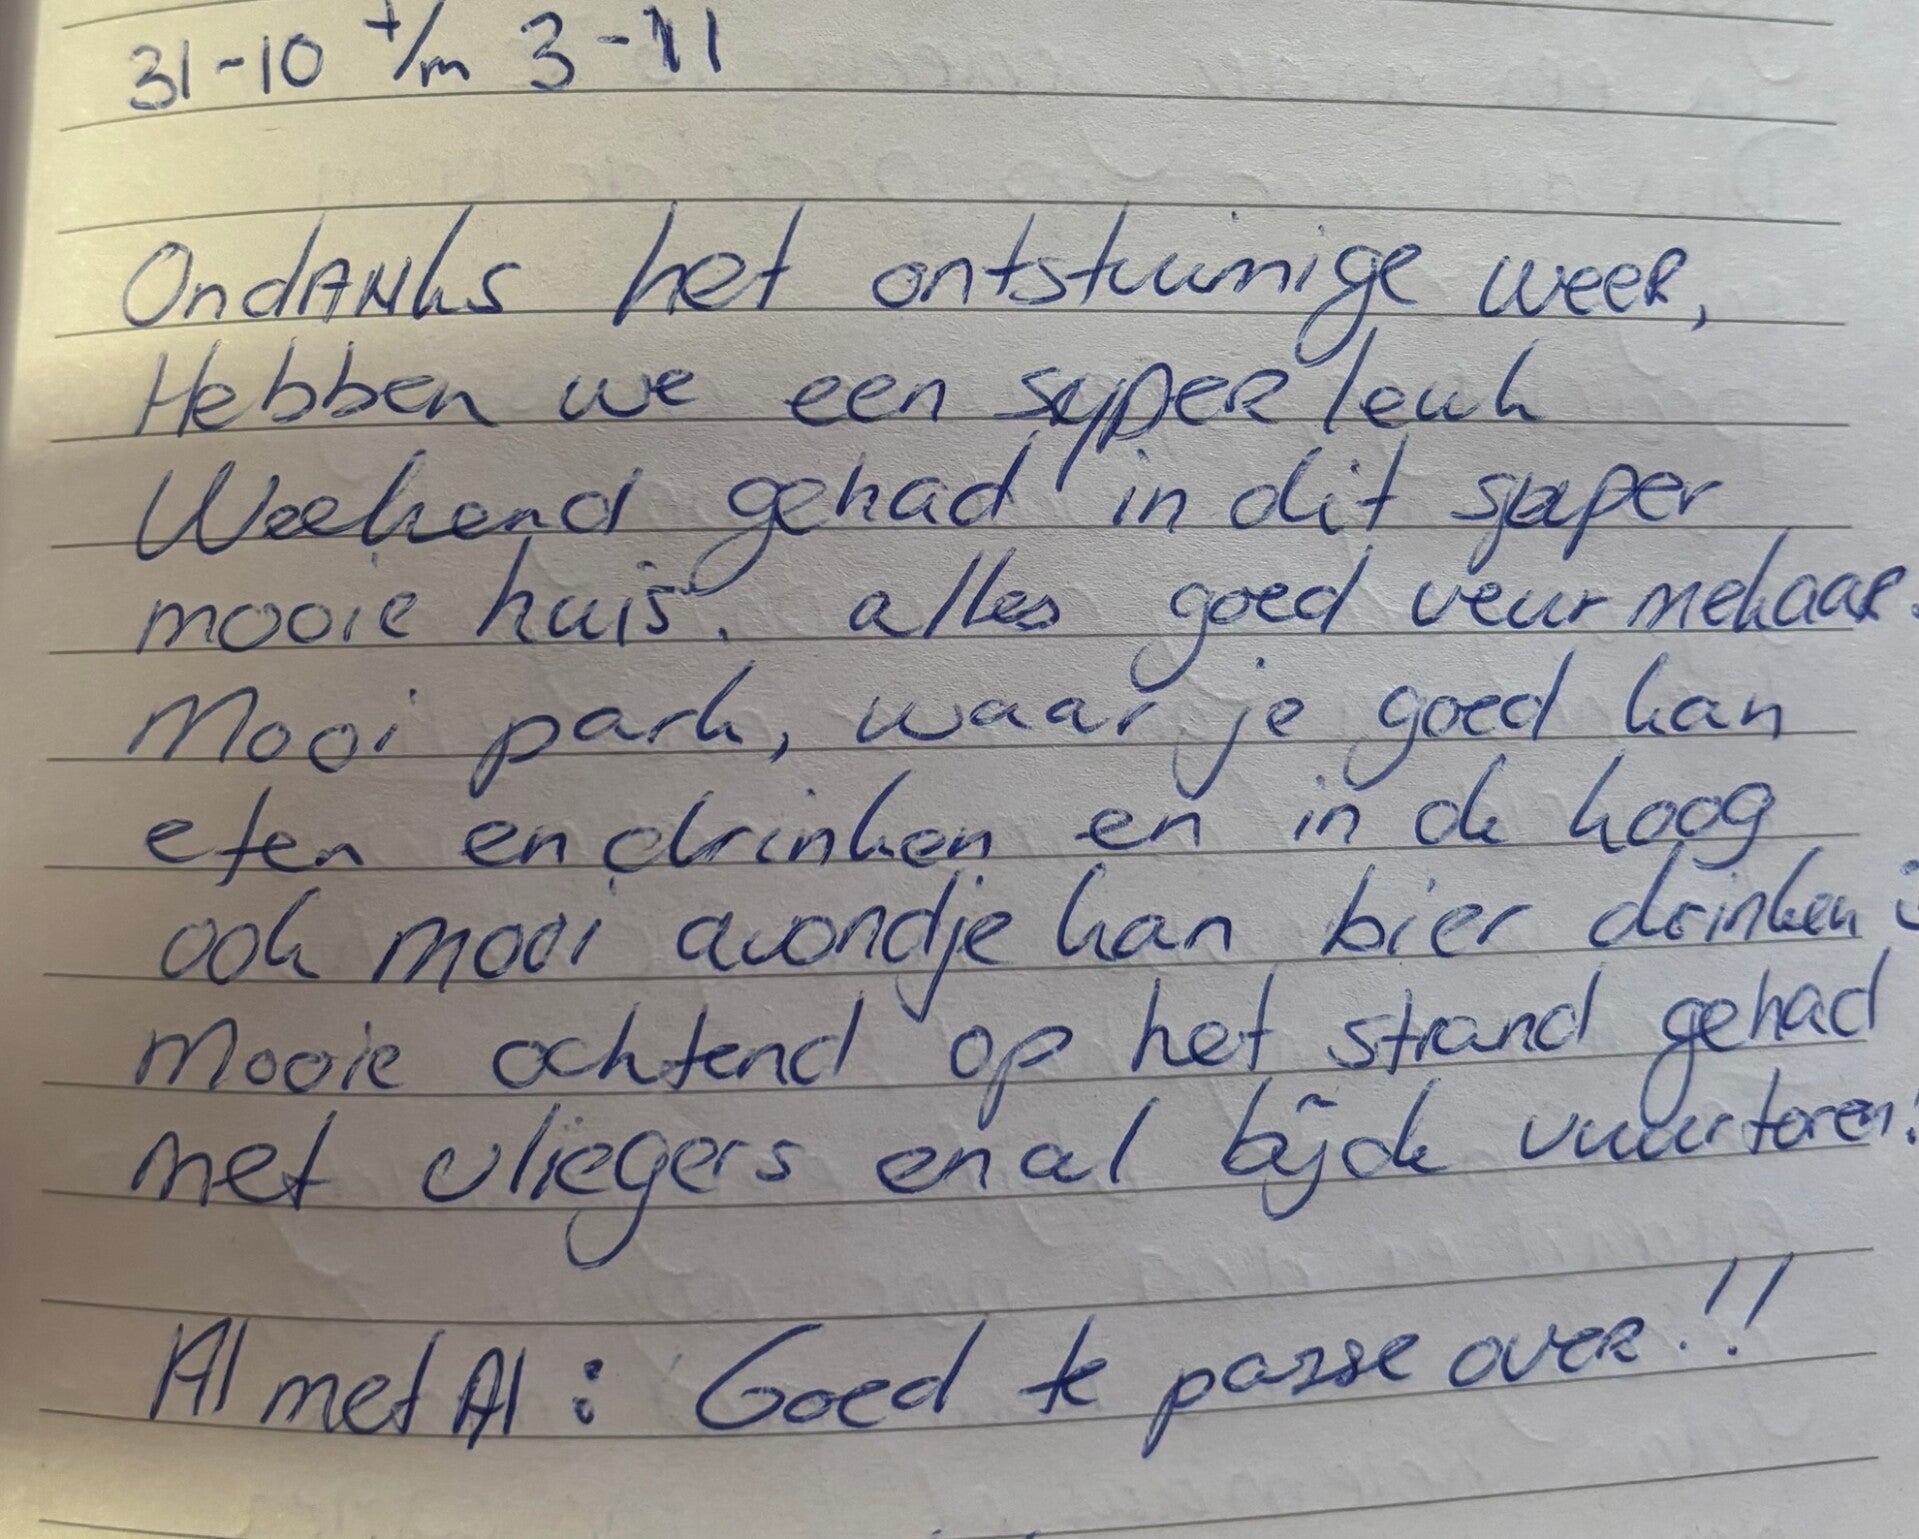 31-10 t/m 3-11
Ondanks het ontstuimige weer,
Hebben we een super leuk
Weekend gehad in dit super
mooie huis. alles goed veur mekaar.
Mooi park, waar je goed kan
eten en drinken en in de hoog
ook mooi avondje kan bier drinken :
Mooie ochtend op het strand gehad
met vliegers en al bij de vuurtoren!
Al met Al : Goed te passe over!!